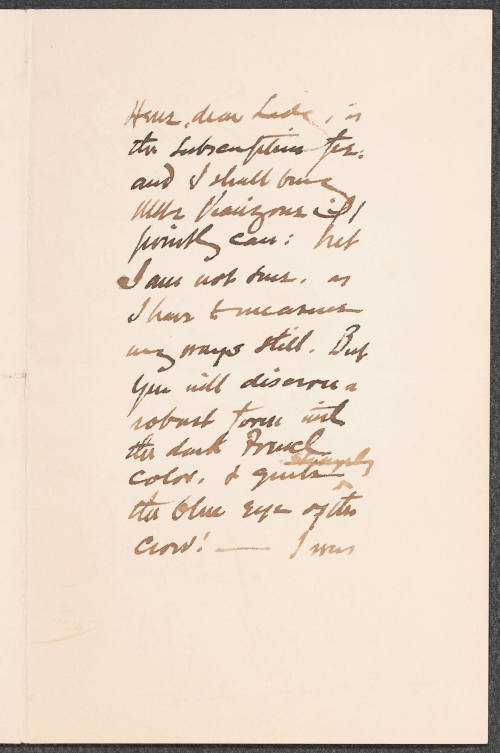 Here, dear Lady, is
the subscription fee.
and I shall bring
Mlle
possibly can: but
I am not sure, as
I have to measure
my ways still. But
you will discover a
robust form with
the dark French
color, & quite strangely
the blue eye of the
crow! — I was